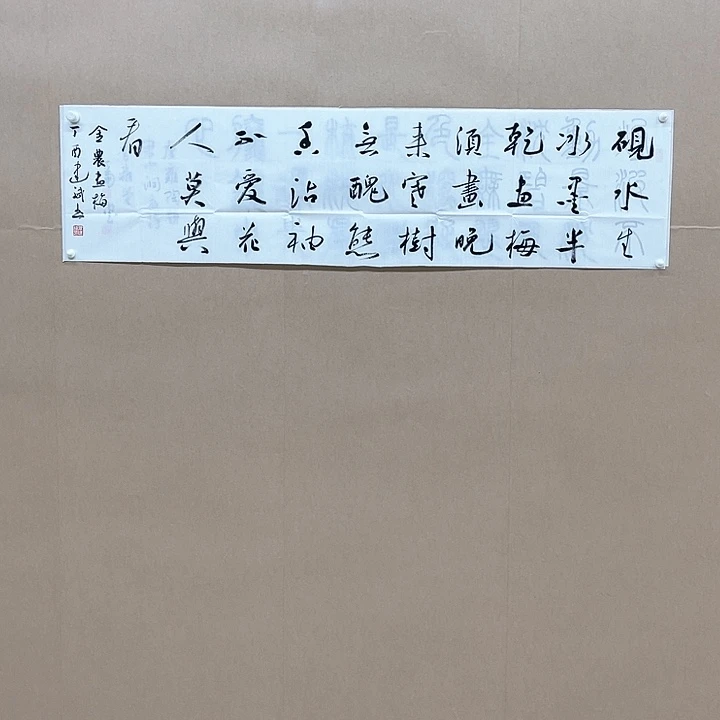 硯水生
冰墨半
乾畫梅
須畫晚
來寒樹
無醜態
香沾袖
不愛花
人莫與
看
金農畫梅
丁酉建斌书